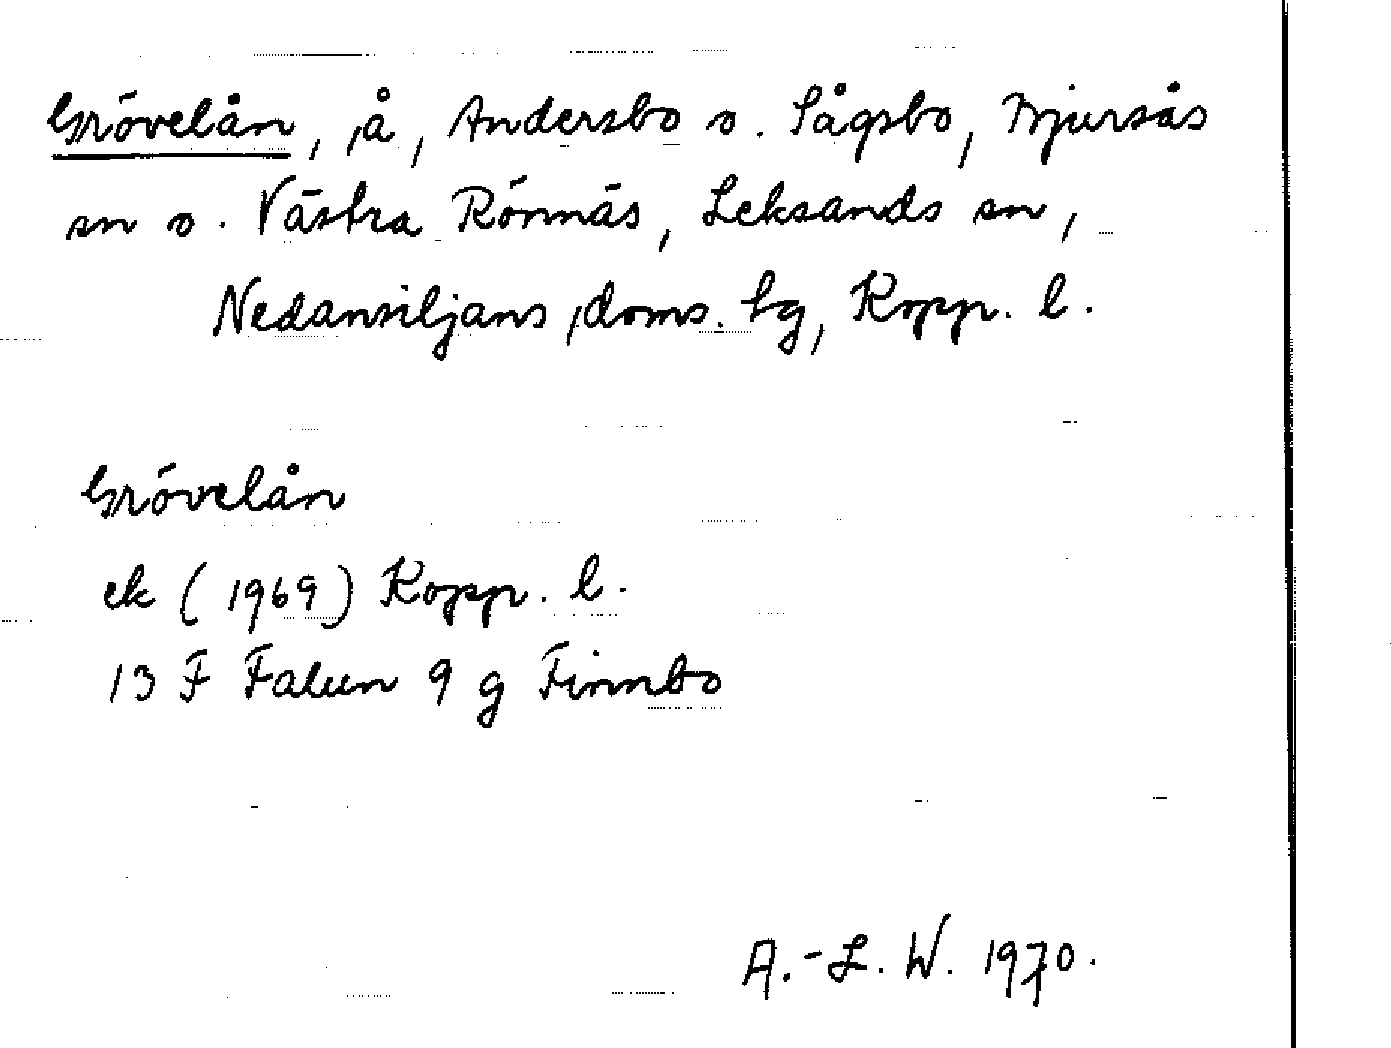 Grövelån, å, Andersbo o. Sågsbo, Bjursås
sn o. Västra Rönnäs, Leksands sn,
Nedansiljans doms. hg, Kopp. l.
Grövelån
ek (1969) Kopp. l.
13 F Falun 9 g Finnbo
A.-L. W. 1970.